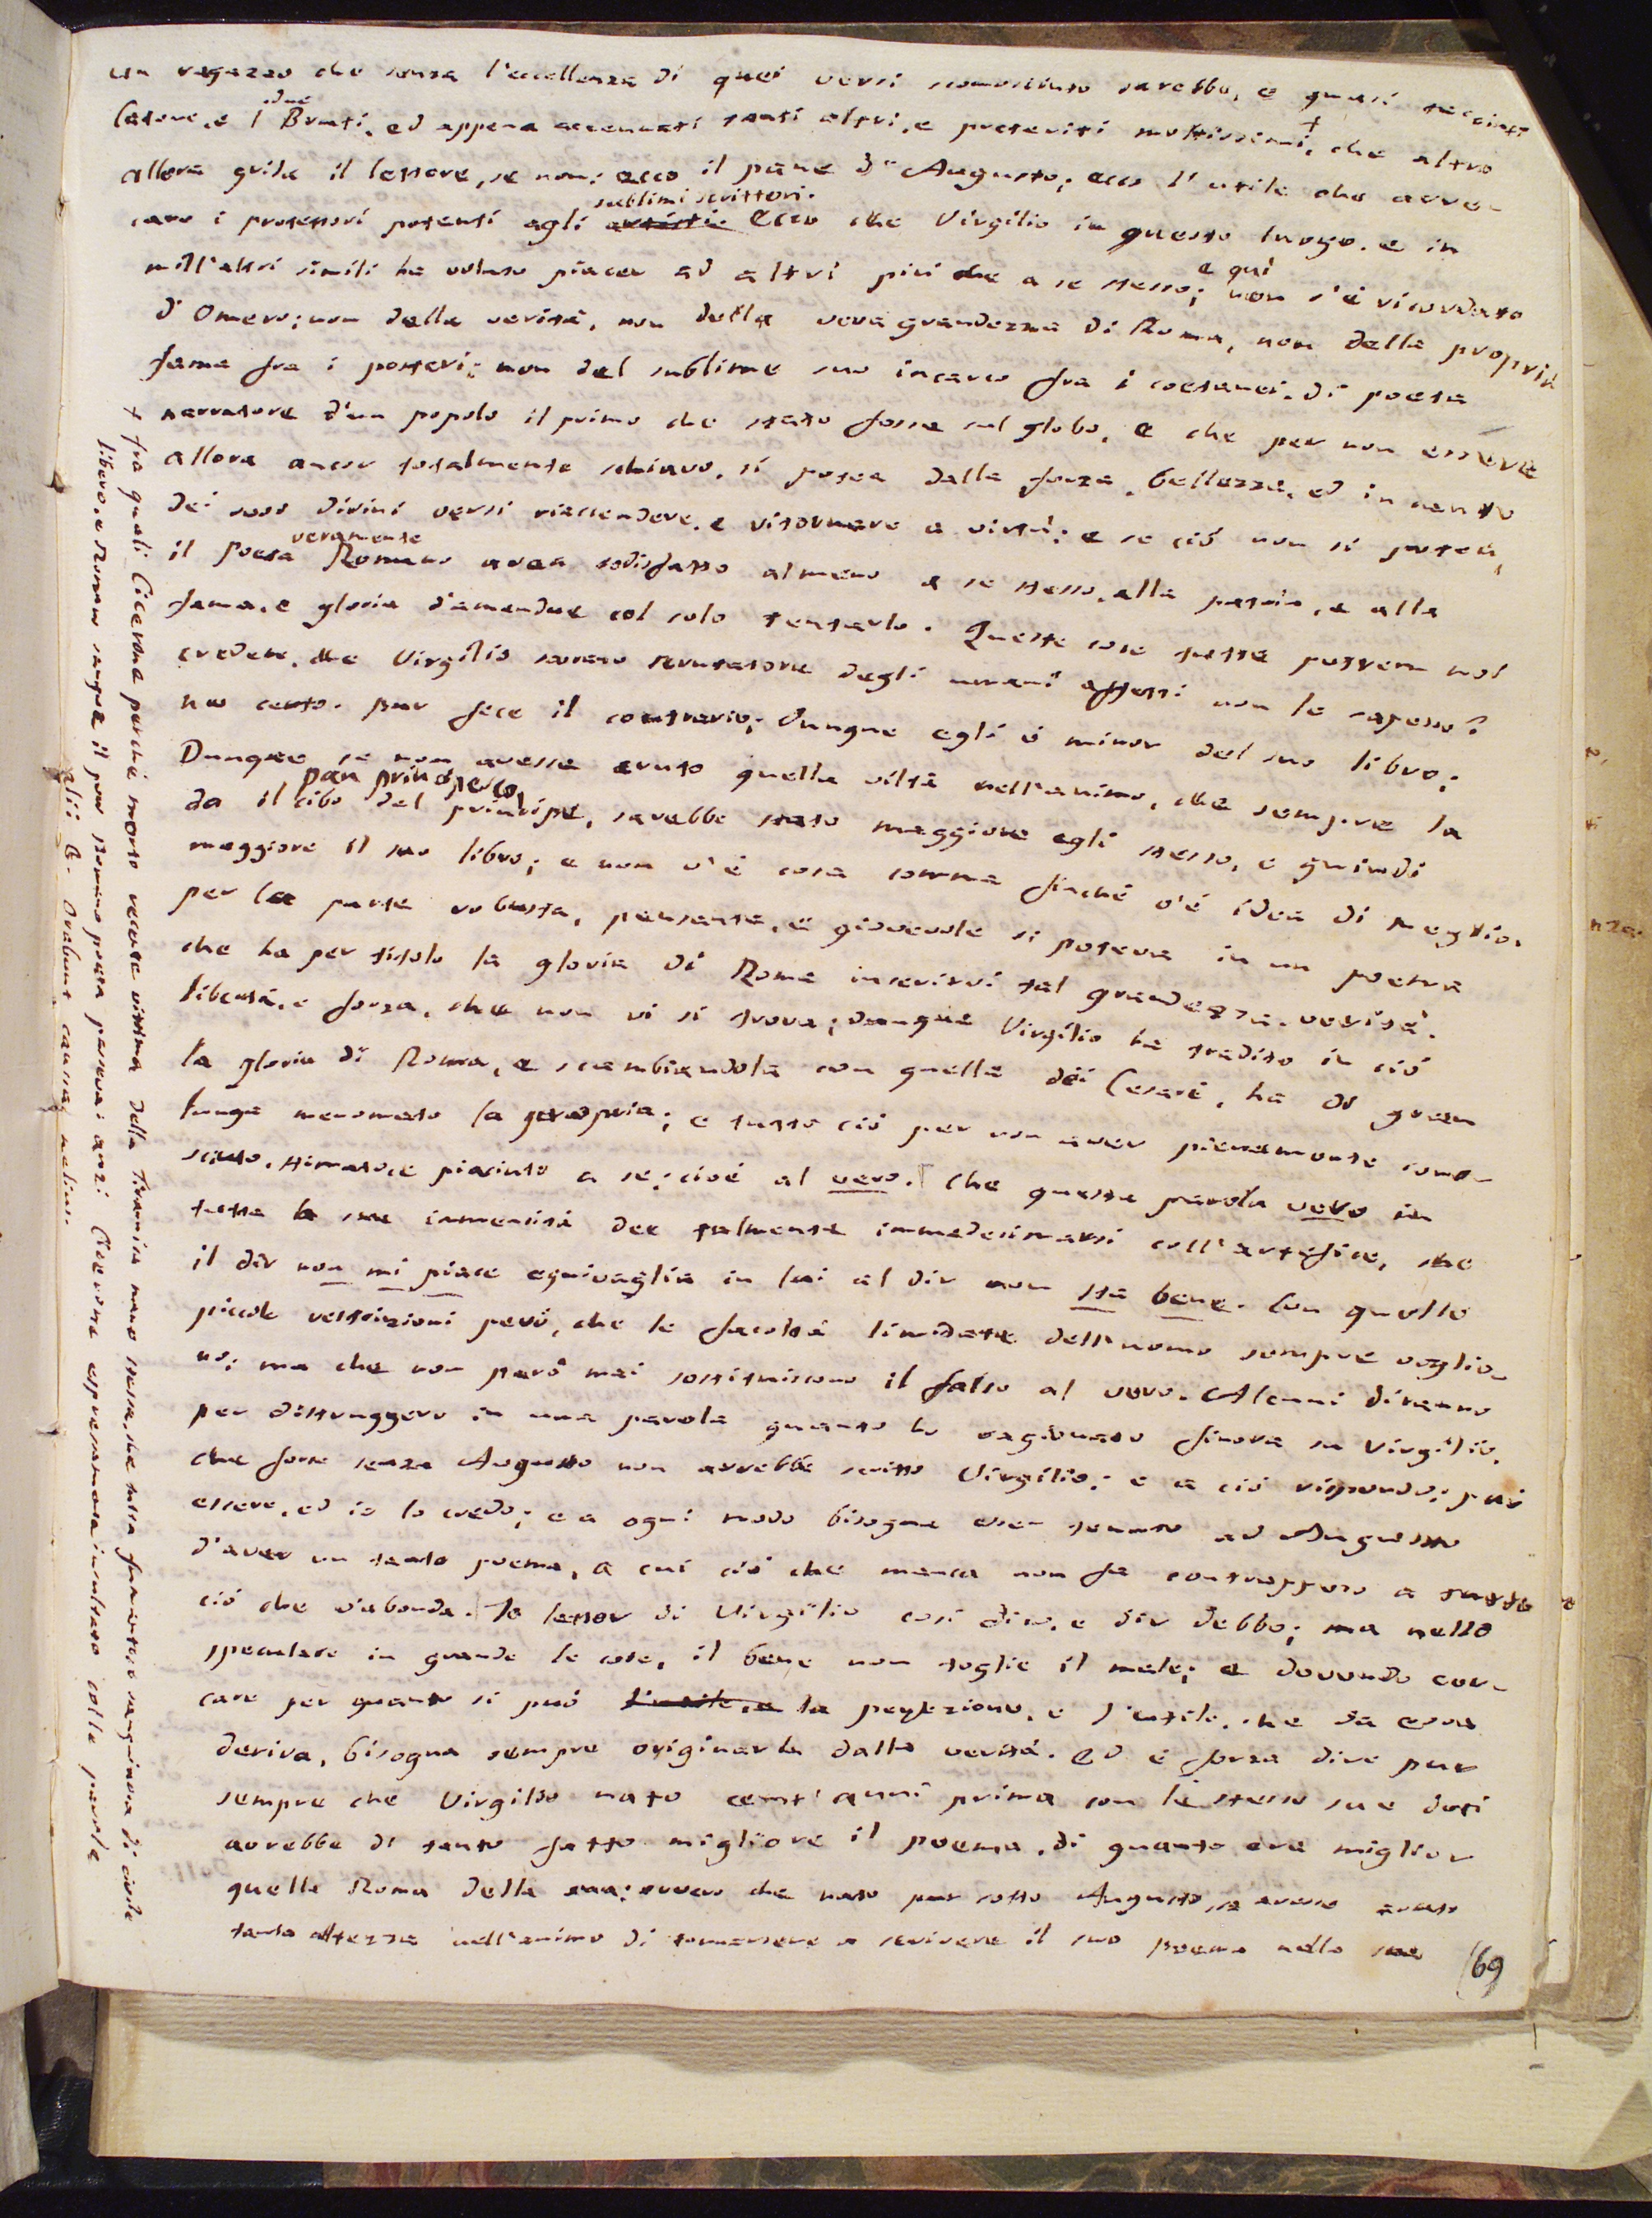 un ragazzo che senza l'eccellenza di quei versi sconosciuto sarebbe, e quasi tacciuti
Catone, e i due Bruti, ed appena accennati tanti altri, e preteriti moltissimi, + che altro
allora grida il lettore, se non: ecco il pane d'Augusto; ecco l'utile che arre-
cano i protettori potenti agli artisti sublimi scrittori. Ecco che Virgilio in questo luogo, e in
mill'altri simili ha voluto piacer ad altri più che a se stesso; e qui non s'è ricordato
d'Omero; non della verità, non della vera grandezza di Roma, non della propria
fama fra i posteri; non del sublime suo incarco fra i coetanei, di poeta
narratore d'un popolo il primo che stato fosse sul globo, e che per non essere
allora ancor totalmente schiavo, si potea dalla forza, bellezza, ed incanto
dei suoi divini versi riaccendere, e ritornare a virtù; e se ciò non si potea,
il poeta veramente Romano avea sodisfatto almeno a se stesso, alla patria, e alla
fama, e gloria d'amendue col solo tentarlo. Queste cose tutte potrem noi
credere, che Virgilio sovrano scrutatore degli umani affetti non le sapesse?
no certo. pur fece il contrario; dunque egli è minor del suo libro;
Dunque se non avesse avuto quella viltà nell'animo, che sempre la
da il cibo del principe, pan principesco, sarebbe stato maggiore egli stesso, e quindi
maggiore il suo libro; e non v'è cosa somma finchè v'è idea di meglio.
per la parte robusta, pensante, e giovevole si poteva in un poema
che ha per titolo la gloria di Roma inserirvi tal grandezza, verità,
libertà, e forza, che non vi si trova; dunque Virgilio ha tradito in ciò
la gloria di Roma, e scambiandola con quella dei Cesari, ha di gran
lunga menomato la propria; e tutto ciò per non aver pienamente cono-
sciuto, stimato, e piaciuto a se; cioè al vero. Che questa parola vero in
tutta la sua immensità dee talmente immedesimarsi coll'artefice, che
il dir non mi piace equivaglia in lui al dir non sta bene. Con quelle
piccole restrizioni però, che le facoltà limitate dell'uomo sempre voglio-
no; ma che non però mai sostituiscono il falso al vero. Alcuni diranno
per distruggere in una parola quanto ho ragionato finora su Virgilio,
che forse senza Augusto non avrebbe scritto Virgilio; e a ciò rispondo: può
essere, ed io lo credo; e a ogni modo bisogna esser tenuto ad Augusto
d'aver un tanto poema, a cui ciò che manca non fa contrappeso a tutto
ciò che v'abonda. Io lettor di Virgilio così dico, e dir debbo; ma nello
specular in grande le cose, il bene non toglie il male; e dovendo cer-
care per quanto si può l'utile, e la perfezione, e l'utile, che da essa
deriva, bisogna sempre originarla dalla verità. Ed è forza dire pur
sempre che Virgilio nato cent'anni prima con le stesse sue doti
avrebbe di tanto fatto migliore il poema, di quanto era miglior
quella Roma della sua; ovvero che nato pur sotto Augusto, se avesse avuto
tanta altezza nell'animo di tornarsene a scrivere il suo poema nella sua
69
+ fra quali Cicerone perchè morto recente vittima della Tirannia nano stessa, che tutta fumante sanguinosa di civile
libero, e Romano sangue il pur Romano poeta pasceva: anzi Cicerone espressamente insultato colle parole
alii &c. Orabunt causas melius.